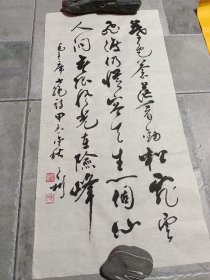 暮色苍茫看劲松乱云
飞渡仍従容天生一個仙
人洞无限风光在险峰
毛主席七绝诗甲